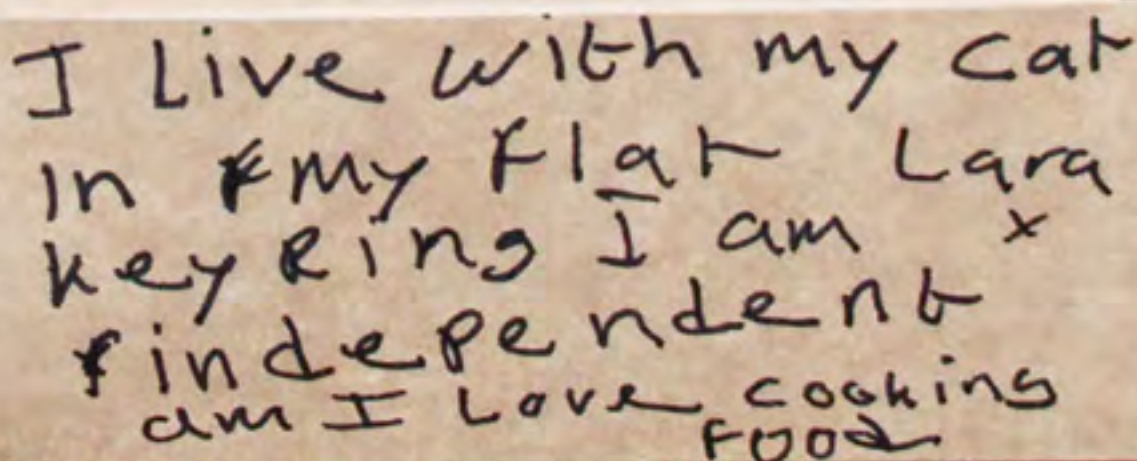 I Live with my cat
in my Flat Lara
keyRing I am x
independent
am I Love cooking
Food